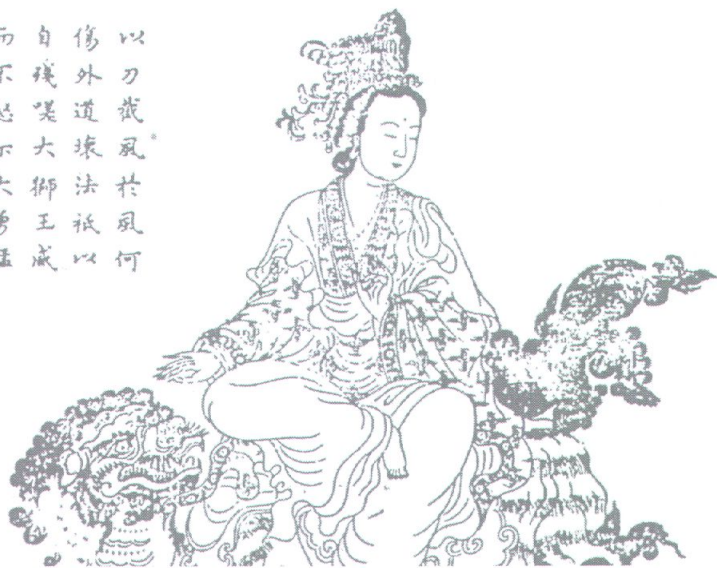 以刀截風於風何
傷外道壞法祇以
自殘嗟大獅王威
而不怒